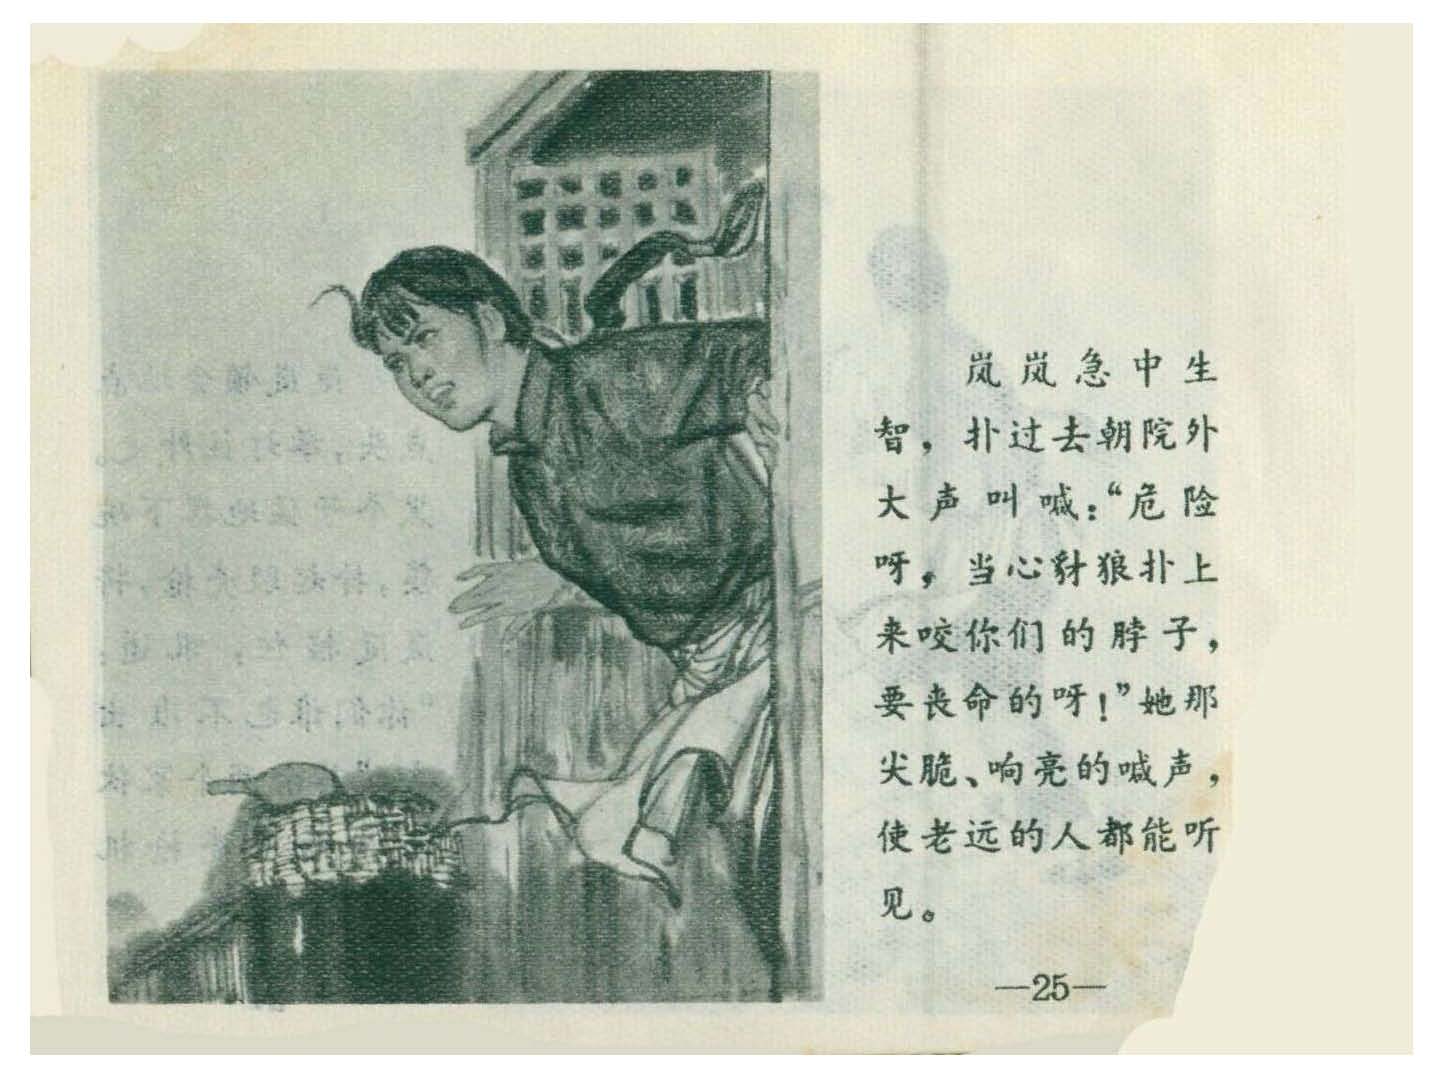 岚岚急中生
智，扑过去朝院外
大声叫喊：“危险
呀，当心豺狼扑上
来咬你们的脖子，
要丧命的呀！”她那
尖脆、响亮的喊声，
使老远的人都能听
见。
—25—